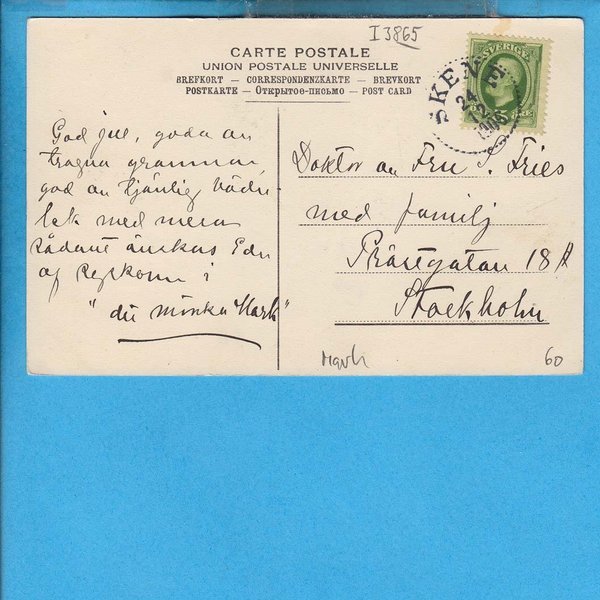 I 3865
CARTE POSTALE
UNION POSTALE UNIVERSELLE
BREFKORT — CORRESPONDENZKARTE — BREVKORT
POSTKARTE — Открытое-письмо — POST CARD
SVERIGE
24 12
1908
God jul, goda an
trägna grannar,
god an tjänlig väder
lek med mera
sådant önskas Eder
af Reskonn i
"det mörka Mark"
Doktor an Fru S. Fries
med familj
Prästgatan 18A
Stockholm
Mark
60